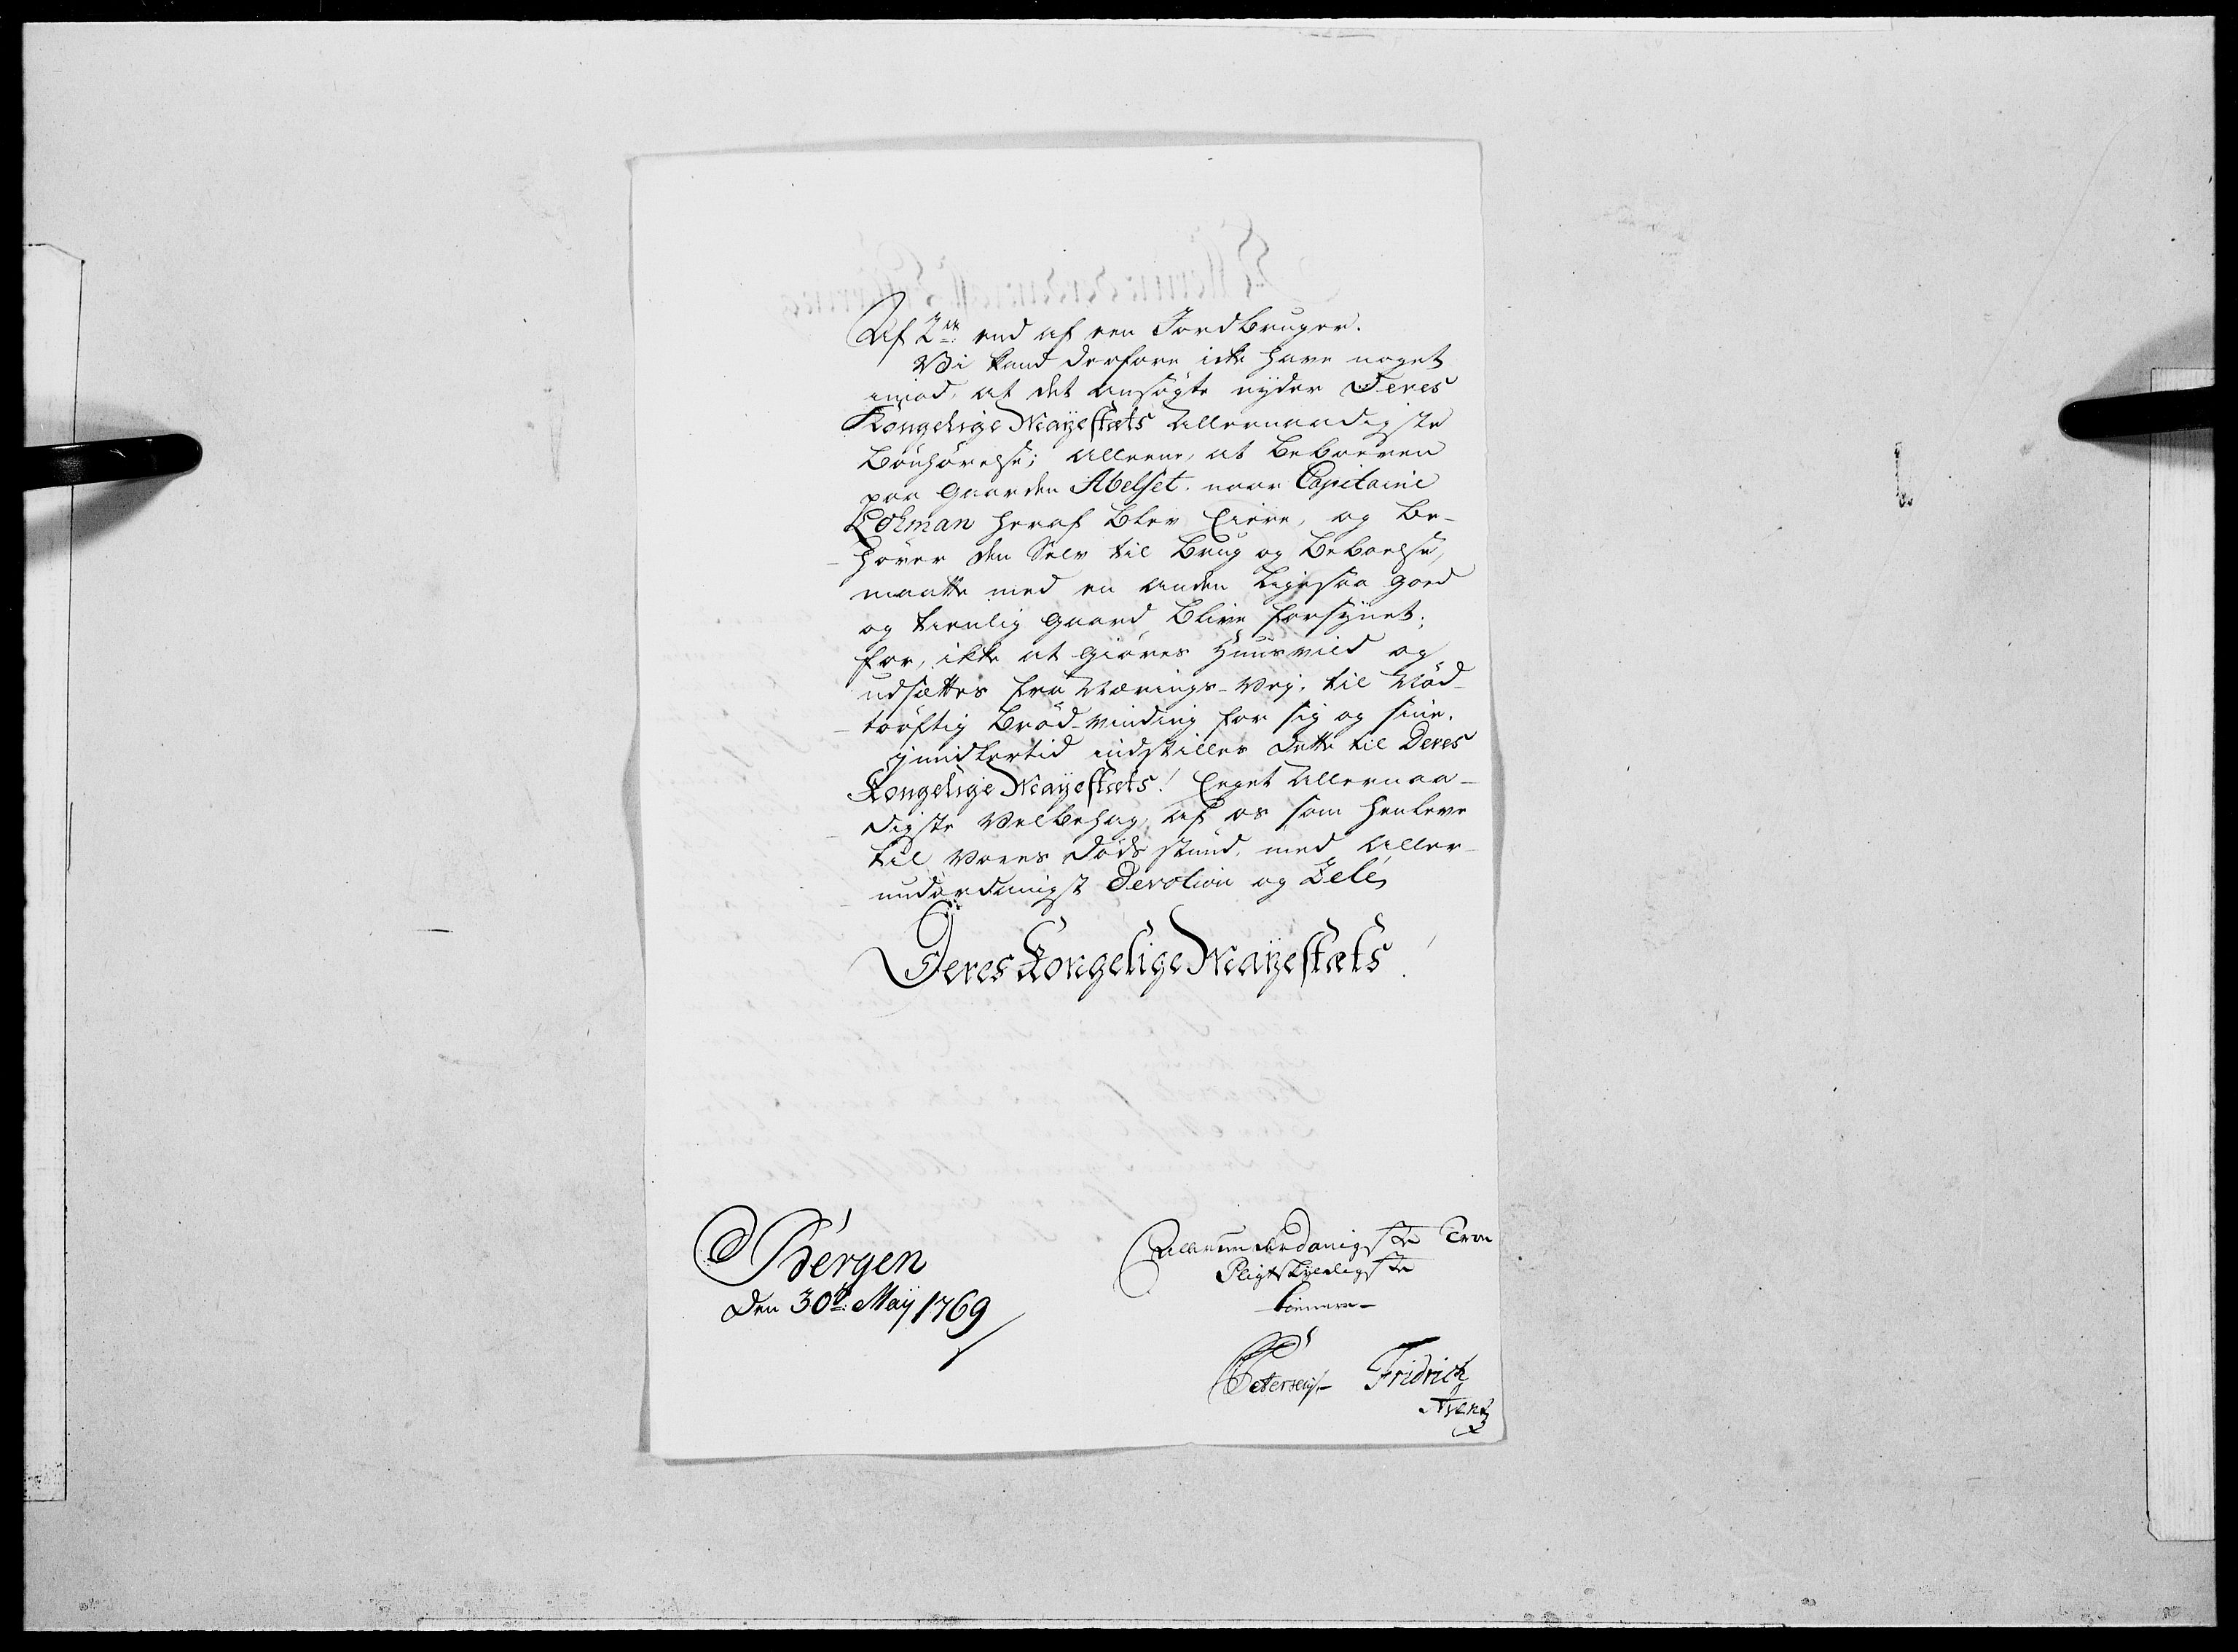 Af 2de end af een Jordbruger.
Vi kand derfore icke have noget
imod, at det ansøgte nyder Deres
Kongelige Mayestæts allernaadigste
Bønhørelse; alleene, at Beboeren
paa Gaarden Abelset. naar Capitaine
Lohman heraf blev Eiere, og be-
høver den Selv til Brug og Beboelse,
maatte med en anden ligesaa goed
og tienlig Gaard blive forsynet;
for, ikke at giøres Huusvild og
udsættes fra Nærings-Vej. til Nød-
tørftig Brød-vinding for sig og sine.
jmidlertid indstilles dette til Deres
Kongelige Mayestæts! Eeget Allernaa-
digste Velbehag, af os som henleve
til vores døds stund. med Aller-
underdanigst Devotion og Zele,
Deres Kongelige Mayestæts!
Bergen
den 30te May 1769
Allerunderdanigste Troe
Pligtskyldigste
tienere
Petersen Fridrich
Arentz